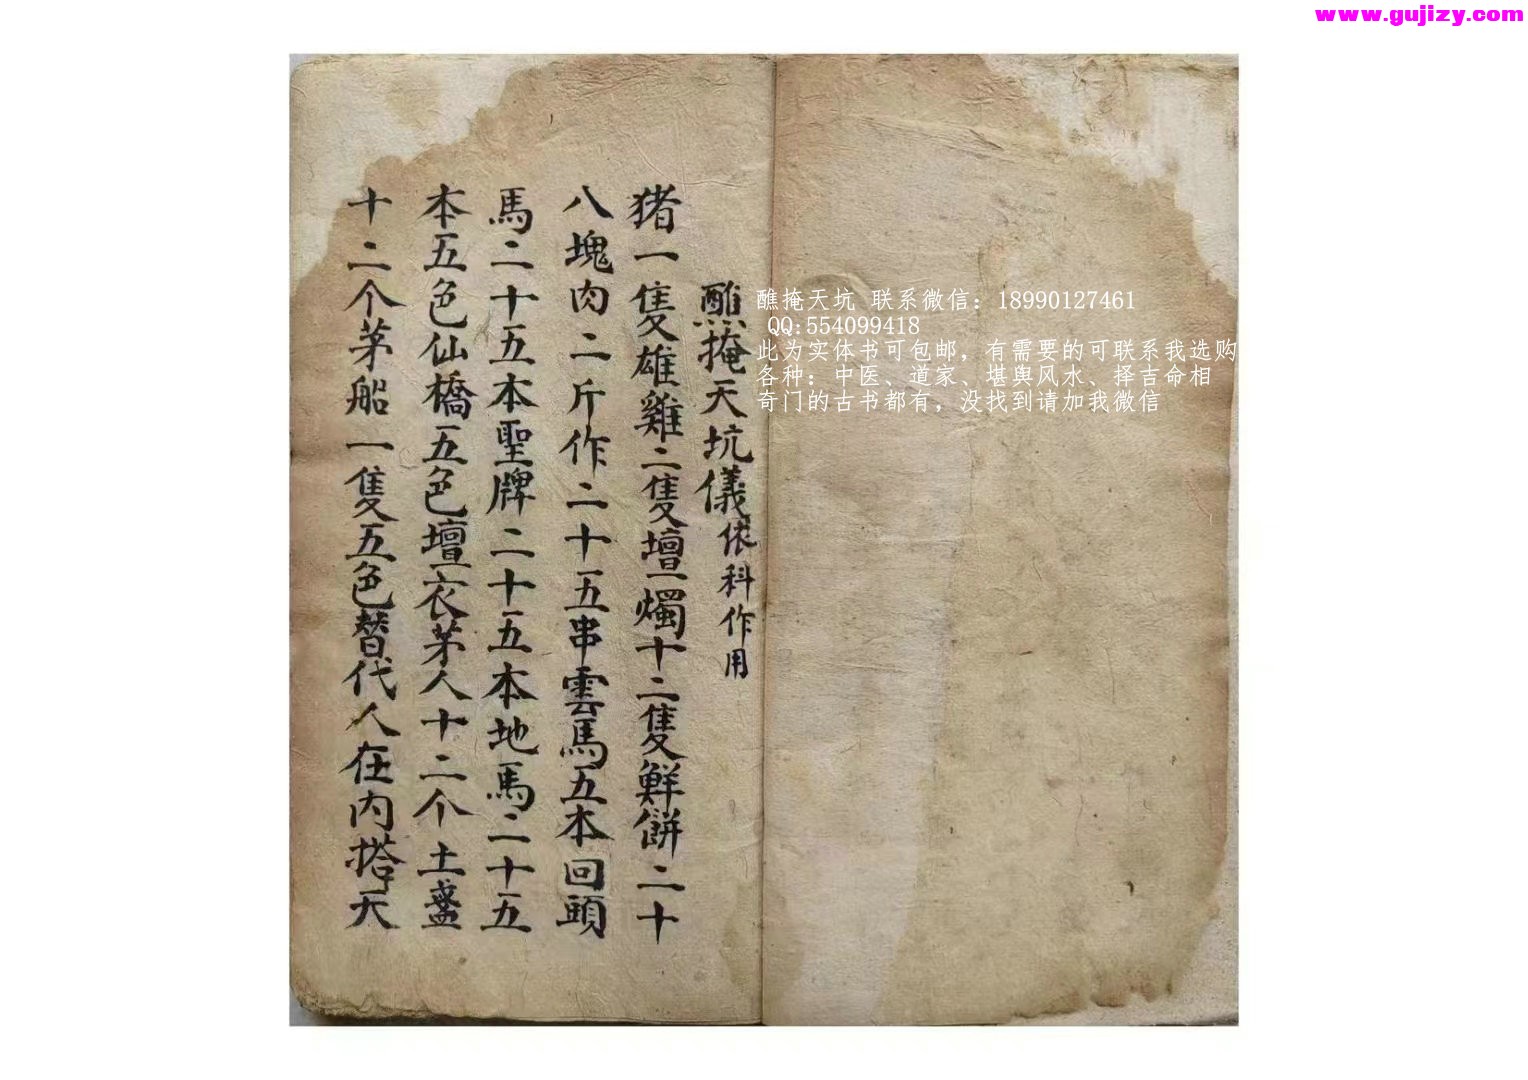 www.gujizy.com
醮掩天坑儀依科作用
猪一隻雄雞二隻壇燭十二隻鮮餅二十
八塊肉二斤作二十五串雲馬五本回頭
馬二十五本聖牌二十五本地馬二十五
本五色仙橋五色壇衣茅人十二个土盞
十二个茅船一隻五色替代人在内搭天
醮掩天坑 联系微信：18990127461
QQ:554099418
此为实体书可包邮，有需要的可联系我选购
各种：中医、道家、堪舆风水、择吉命相
奇门的古书都有，没找到请加我微信